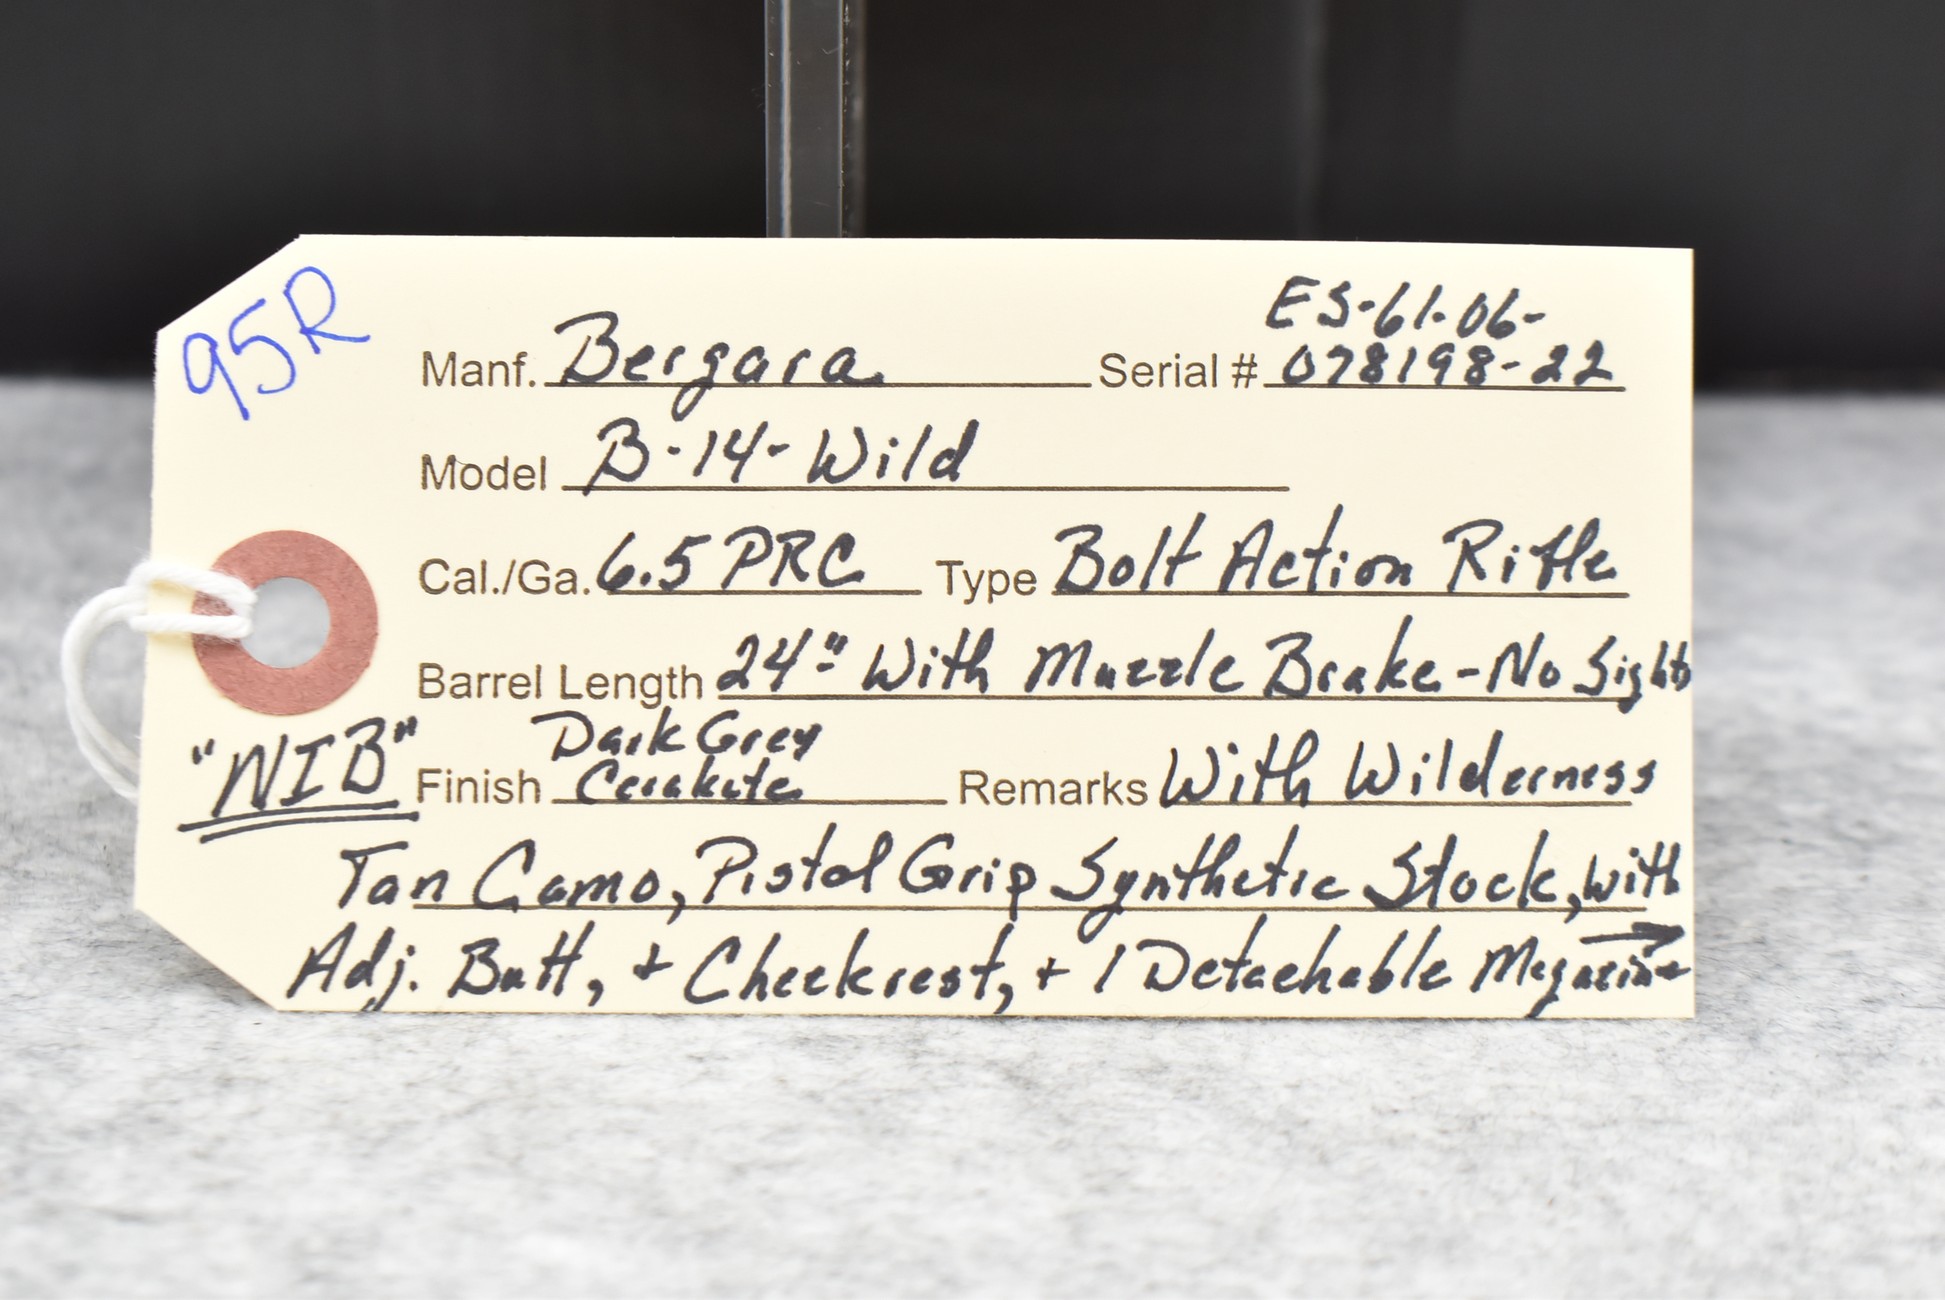 95R
ES-61-06-
Manf. Bergara Serial # 078198-22
Model B-14-Wild
Cal./Ga. 6.5 PRC Type Bolt Action Rifle
Barrel Length 24" With Muzzle Brake-No Sights
"NIB" Finish Dark Grey Cerakote Remarks With Wilderness
Tan Camo, Pistol Grip Synthetic Stock, with
Adj. Butt, + Cheekrest, + 1 Detachable Magazine →